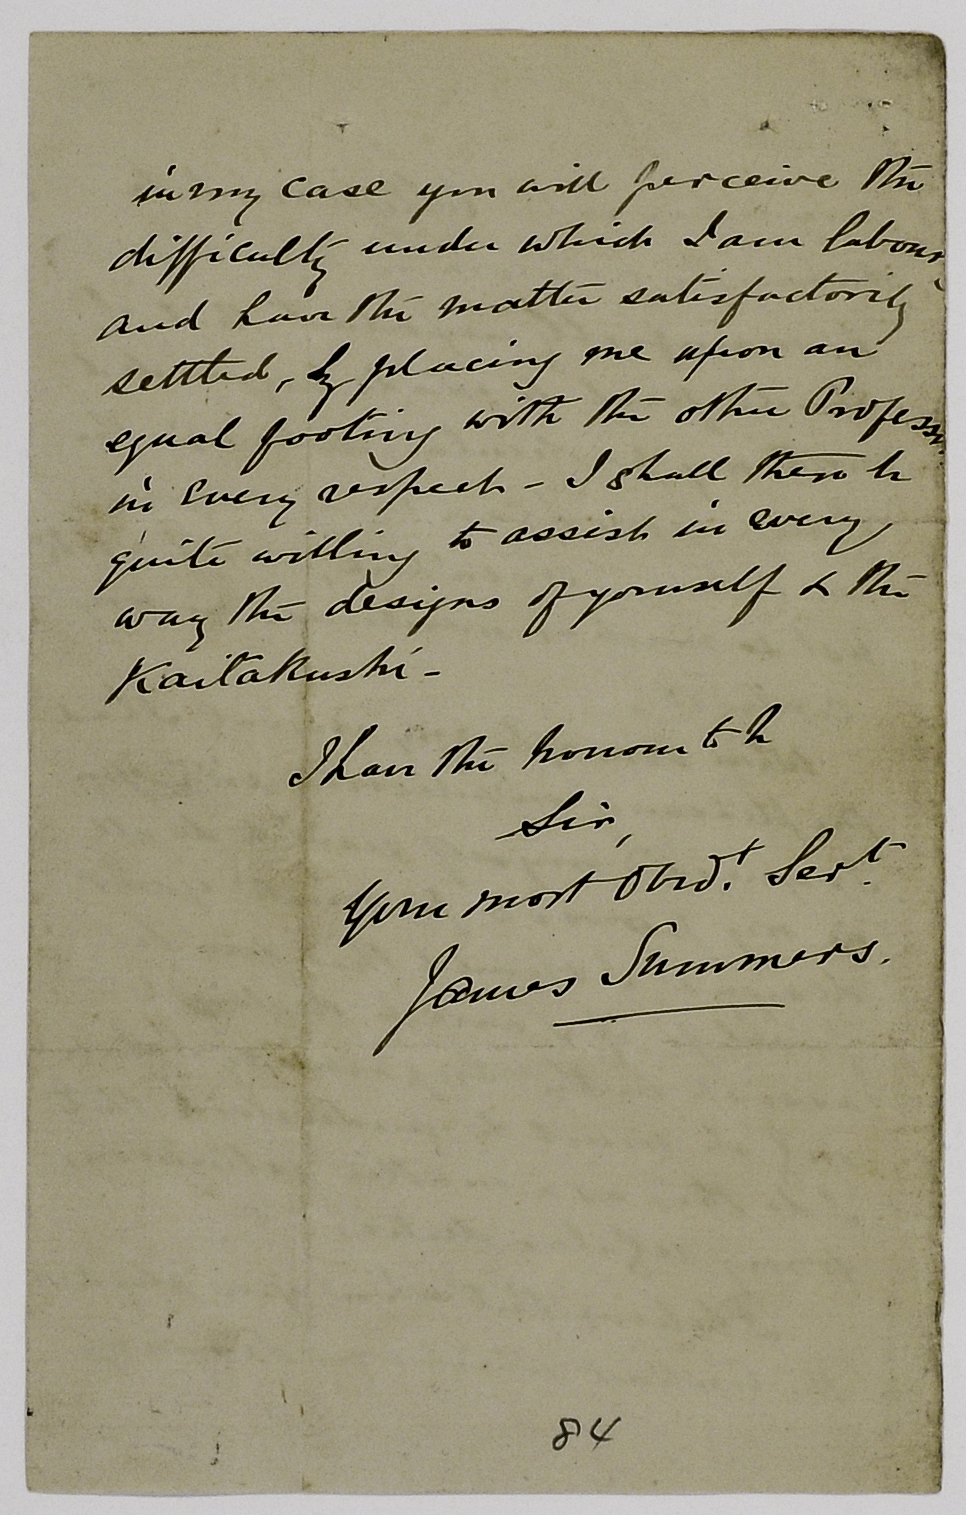 in my case you will perceive the
difficulty under which I am labour
and have the matter satisfactorily
settled, by placing me upon an
equal footing with the other Profess
in every respect - I shall then be
quite willing to assist in every
way the designs of yourself & the
Kaitakushi -
I have the honour to be
Sir,
Your most Obed.t Ser.t
James Summers.
84